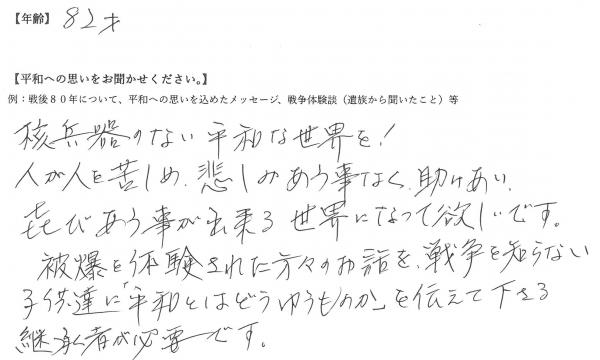 【年齢】 82才
【平和への思いをお聞かせください。】
例：戦後８０年について、平和への思いを込めたメッセージ、戦争体験談（遺族から聞いたこと）等
核兵器のない平和な世界を!
人が人を苦しめ、悲しみあう事なく、助けあい、
㐂びあう事が出来る世界になって欲しいです。
被爆を体験された方々のお話を、戦争を知らない
子供達に「平和とはどうゆうものか」を伝えて下さる
継承者が必要です。